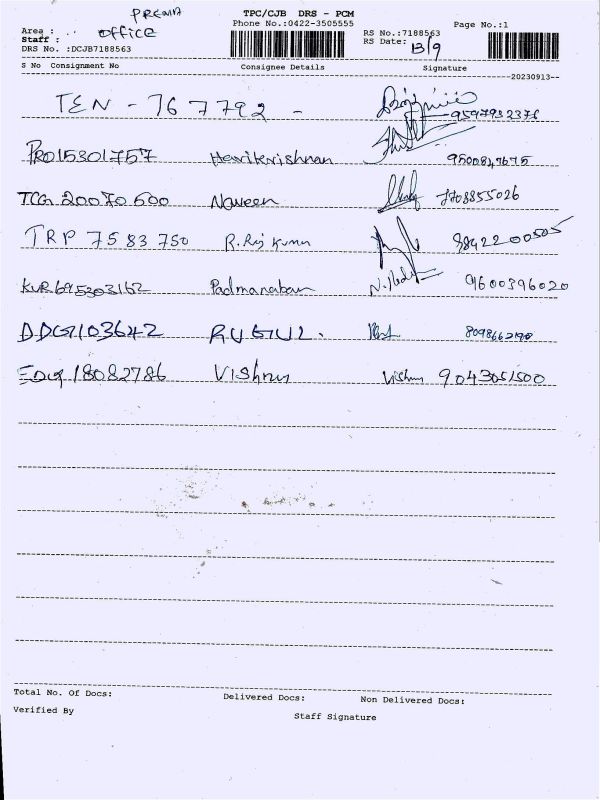 PREMA
TPC/CJB DRS - PCM
Area : office
Phone No.:0422-3505555
Page No.:1
Staff :
RS No.:7188563
RS Date: 13/9
DRS No. :DCJB7188563
S No Consignment No Consignee Details Signature
--20230913--
TEN - 767792 - 9597932376
PRO15301757 Harikrishnan 9500847675
TCG 20070500 Naveen 7708855026
TRP 7583750 R. Raj Kumar 9842200505
KUR695303162 Padmanaban 9600396020
DDG1103642 RUGUL. 8098662190
EDG18082786 Vishnu Vishnu 9043051500
Total No. Of Docs: Delivered Docs: Non Delivered Docs:
Verified By Staff Signature